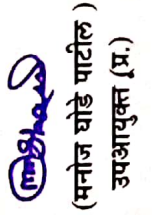 (मनोज घोडे पाटील)
उपआयुक्त (प्र.)